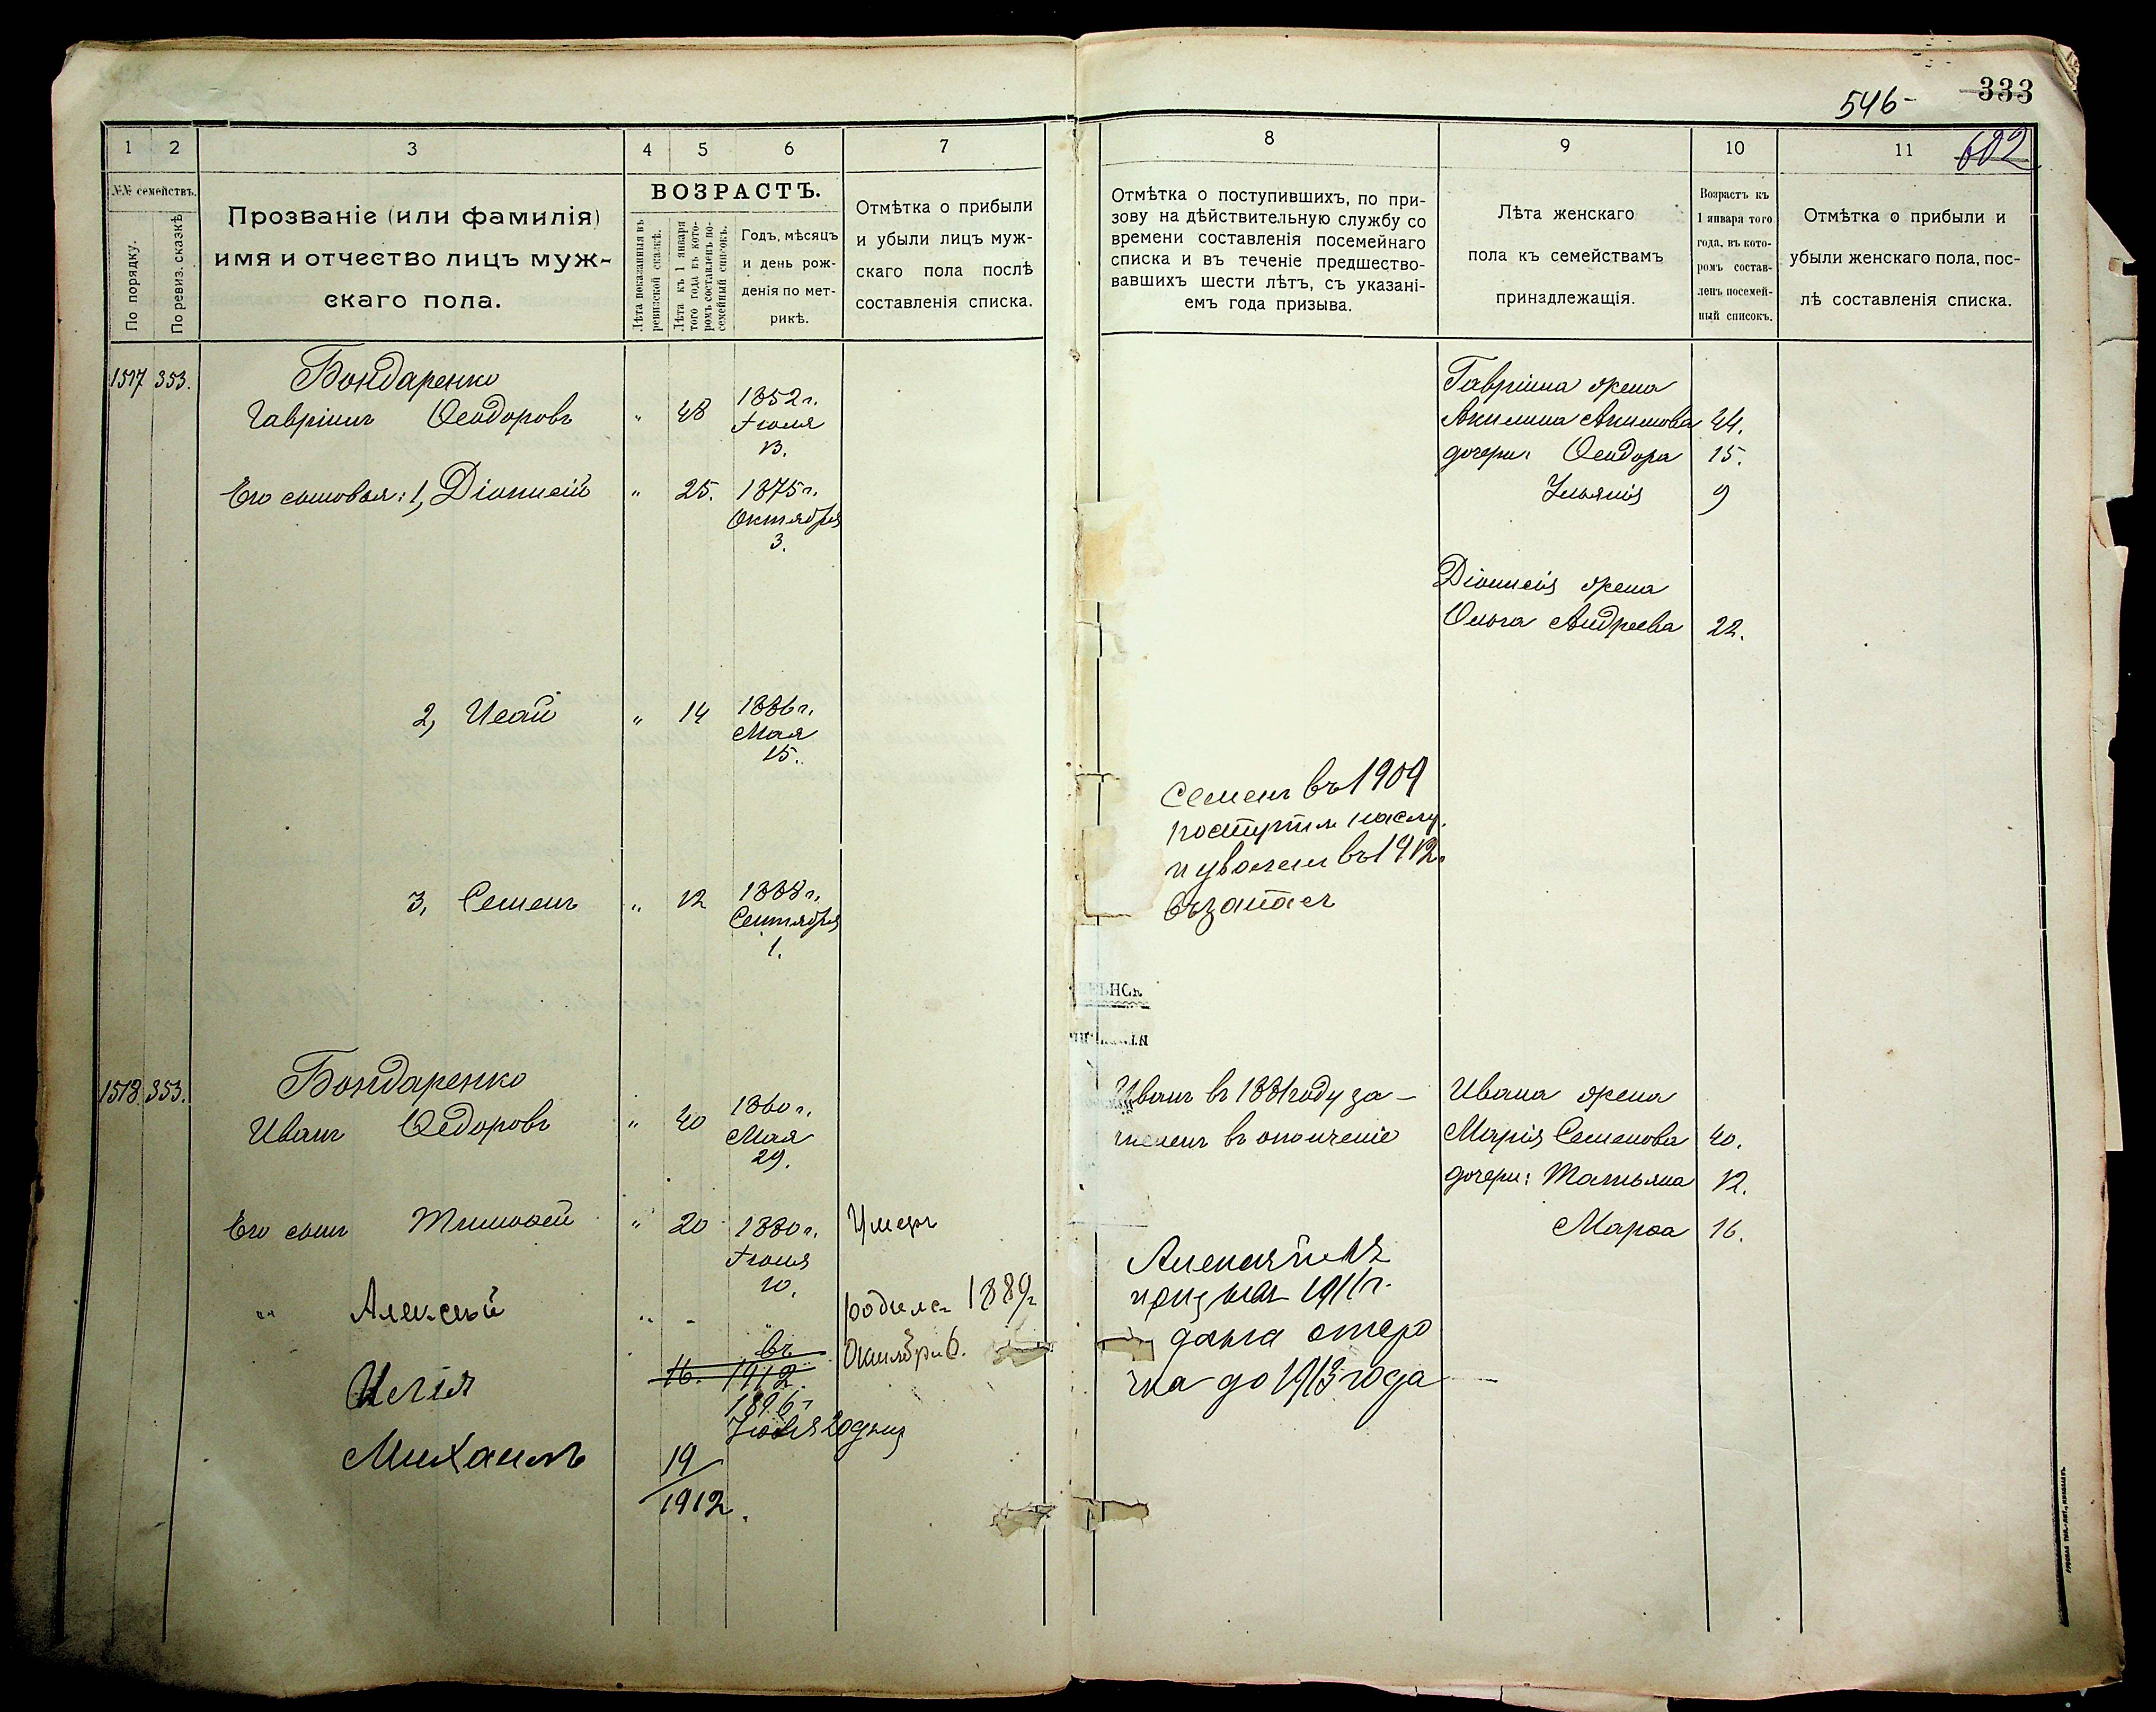 333
546-
602
1 2 3 4 5 6 7
№№ семействъ.
По порядку.
По ревиз. сказкѣ
Прозваніе (или фамилія)
имя и отчество лицъ муж-
скаго пола.
ВОЗРАСТЪ.
Лѣта показанныя въ
ревизской сказкѣ.
Лѣта къ 1 января
того года въ кото-
ромъ составленъ по-
семейный списокъ.
Годъ, мѣсяцъ
и день рож-
денія по мет-
рикѣ.
Отмѣтка о прибыли
и убыли лицъ муж-
скаго пола послѣ
составленія списка.
1517 353. Бондаренко
Гавріилъ Ѳеодоровъ " 48 1852 г.
Іюля
13.
Его сыновья: 1, Діонисій " 25. 1875 г.
Октября
3.
2, Исай " 14 1886 г.
Мая
15.
3, Семенъ " 12 1888 г.
Сентября
1.
1518 353. Бондаренко
Иванъ Ѳедоровъ " 40 1860 г.
Мая
29.
Его сынъ Тимоѳей " 20 1880 г. Умеръ
Іюня
10.
" Алексѣй " - " родился 1889 г
Октября 6.
въ
Илія 16. 1912.
1896 г
Іюля 20 дня
Михаилъ 19
1912.
8 9 10 11
Отмѣтка о поступившихъ, по при-
зову на дѣйствительную службу со
времени составленія посемейнаго
списка и въ теченіе предшество-
вавшихъ шести лѣтъ, съ указані-
емъ года призыва.
Лѣта женскаго
пола къ семействамъ
принадлежащія.
Возрастъ къ
1 января того
года, въ кото-
ромъ состав-
ленъ посемей-
ный списокъ.
Отмѣтка о прибыли и
убыли женскаго пола, пос-
лѣ составленія списка.
Гавріила жена
Акилина Акимова 44.
дочери: Ѳеодора 15.
Ульянія 9
Діонисія жена
Ольга Андреева 22.
Семенъ въ 1909
поступил на слу.
и уволен въ 1912.
въ запасъ
Иванъ въ 1881 году за-
численъ въ ополченіе
Ивана жена
Марія Семенова 40.
дочери: Татьяна 12.
Марѳа 16.
призыва 1911 г.
дана отсро
чка до 1913 года